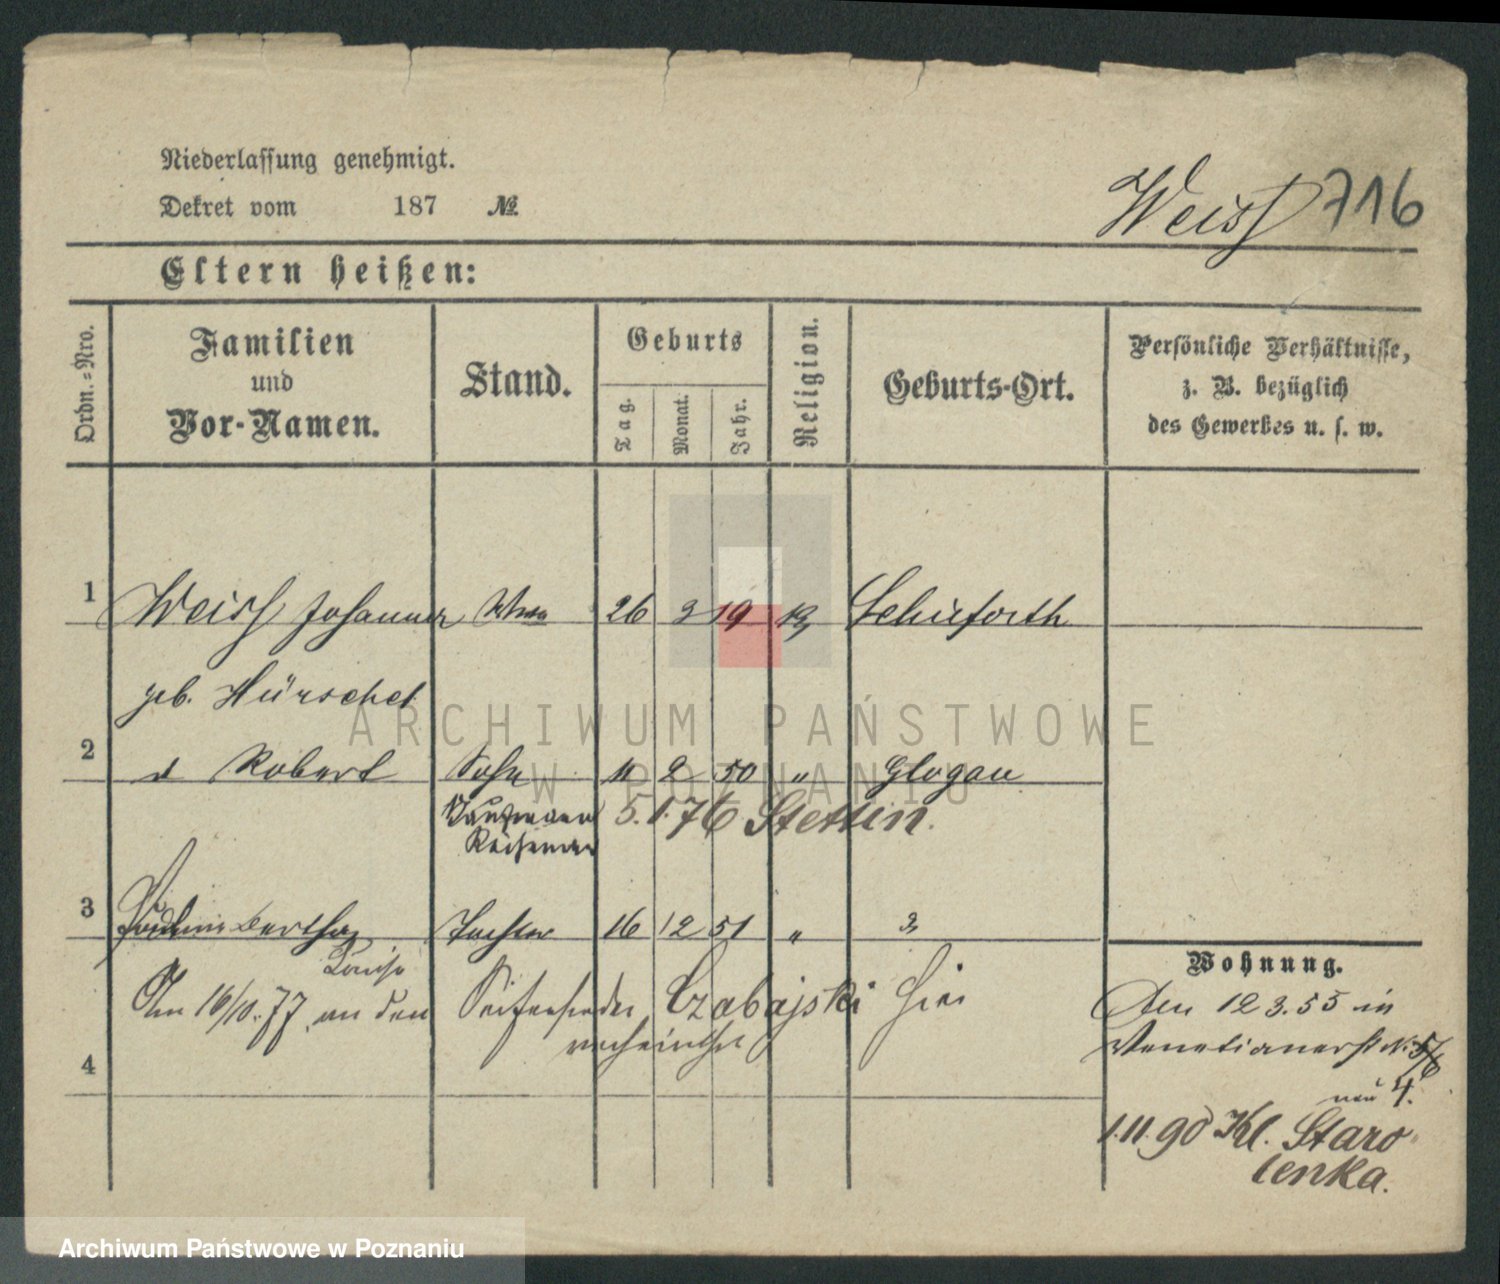 Niederlassung genehmigt.
Dekret vom 187 №
Weiss 716
Eltern heißen:
Ordn.=Nro.
Familien
und
Vor-Namen.
Stand.
Geburts
Tag.
Monat.
Jahr.
Religion.
Geburts-Ort.
Persönliche Verhältnisse,
z. B. bezüglich
des Gewerbes u. s. w.
1 Weiss Johanna 26 3 19
geb.
2 d Robert Sohn 11 2 50 " Glogau
Kaufmann 5.1.76 Stettin.
Reisender
3 Bertha Tochter 16 12 51 "
Louise
Am 16/10.77. an den Seifensieder Czabajski hier
verheirathet
4
Wohnung.
Den 12 3.55 in
Venetianerstr N: 5/6
neu 4.
1.11.90 Kl. Staro
lenka.
ARCHIWUM PAŃSTWOWE
W POZNANIU
Archiwum Państwowe w Poznaniu